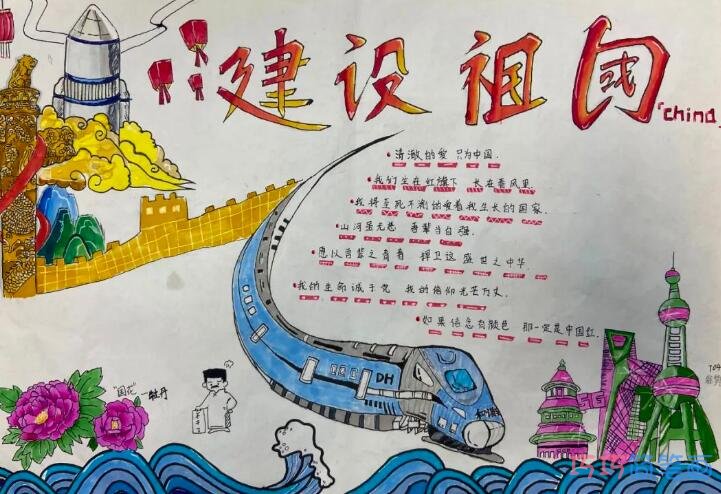 建设祖国
"china
清澈的爱 只为中国.
我们生在红旗下 长在春风里
我将至死不渝的爱着我生长的国家.
山河虽无恙 吾辈当自强.
愿以吾辈之青春 捍卫这盛世之中华.
我的生命诚于党 我的信仰光芒万丈.
如果信念有颜色 那一定是中国红.
DH
"国花"—牡丹
704